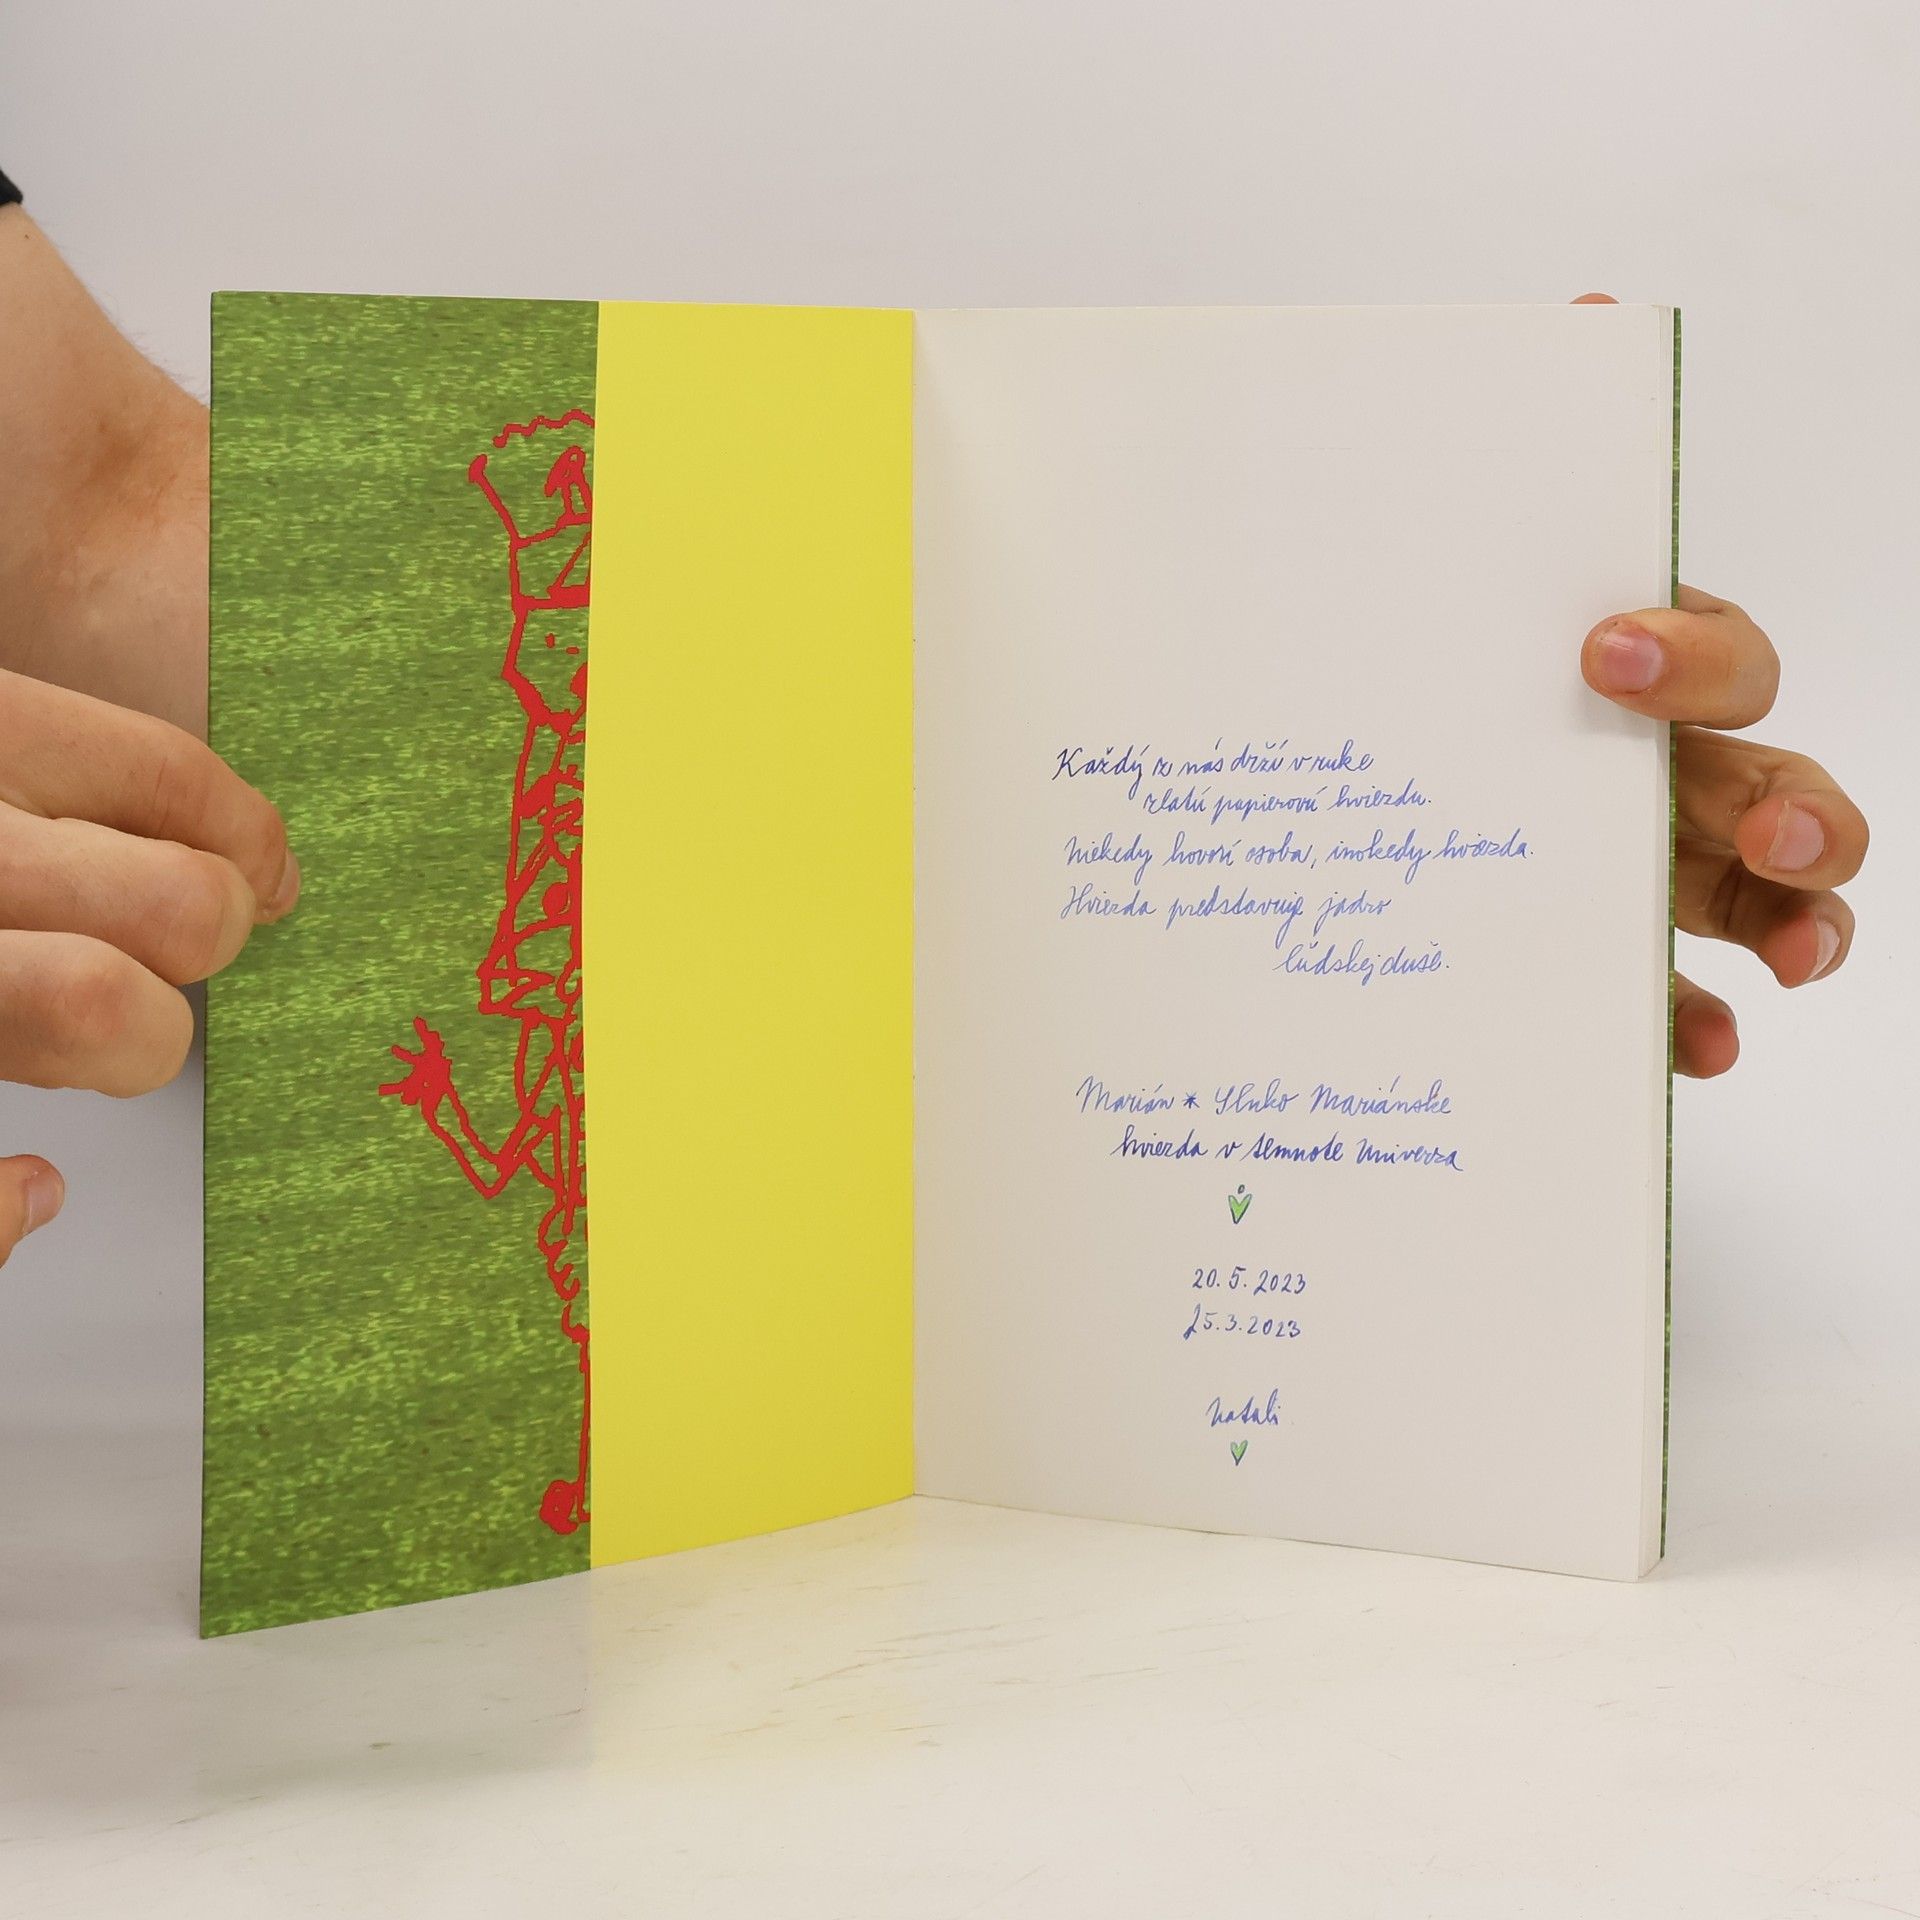 Každý z nás drží v ruke
zlatú papierovú hviezdu.
Niekedy hovorí osoba, inokedy hviezda.
Hviezda predstavuje jadro
ľudskej duše.
Marián * Slnko Mariánske
hviezda v temnote Univerza
20. 5. 2023
25.3.2023
Natali